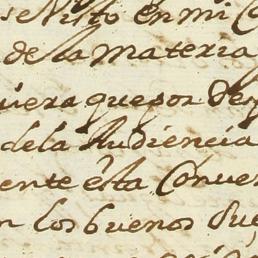 se Visto en mi C
de la Materia
uiera que por de
dela Audiencia
ente esta Conue
n los buenos sue